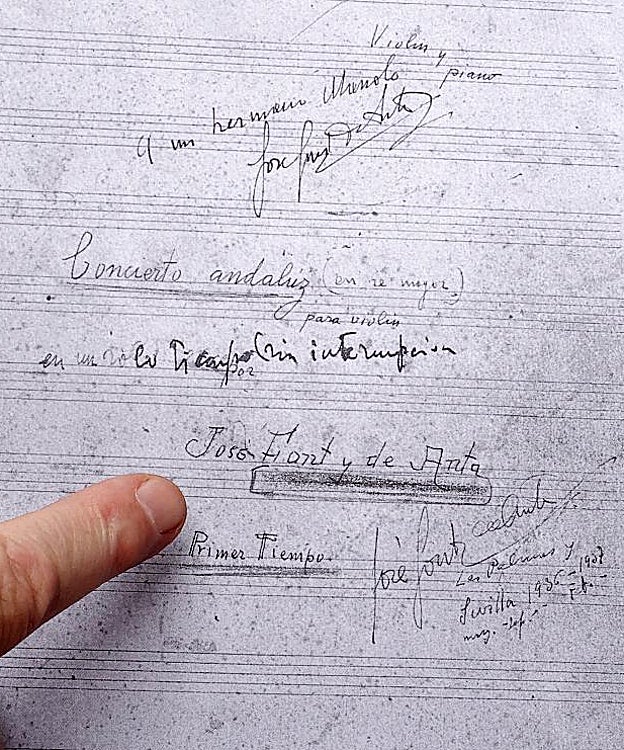 Violin y
piano
A mi hermano Manolo
José Font de Anta
Concierto andaluz (en re mayor)
para violin
en un solo tiempo (sin interrupción
por
José Font y de Anta
Primer Tiempo.
José Font de Anta
Las Palmas y
Sevilla 1936-1937